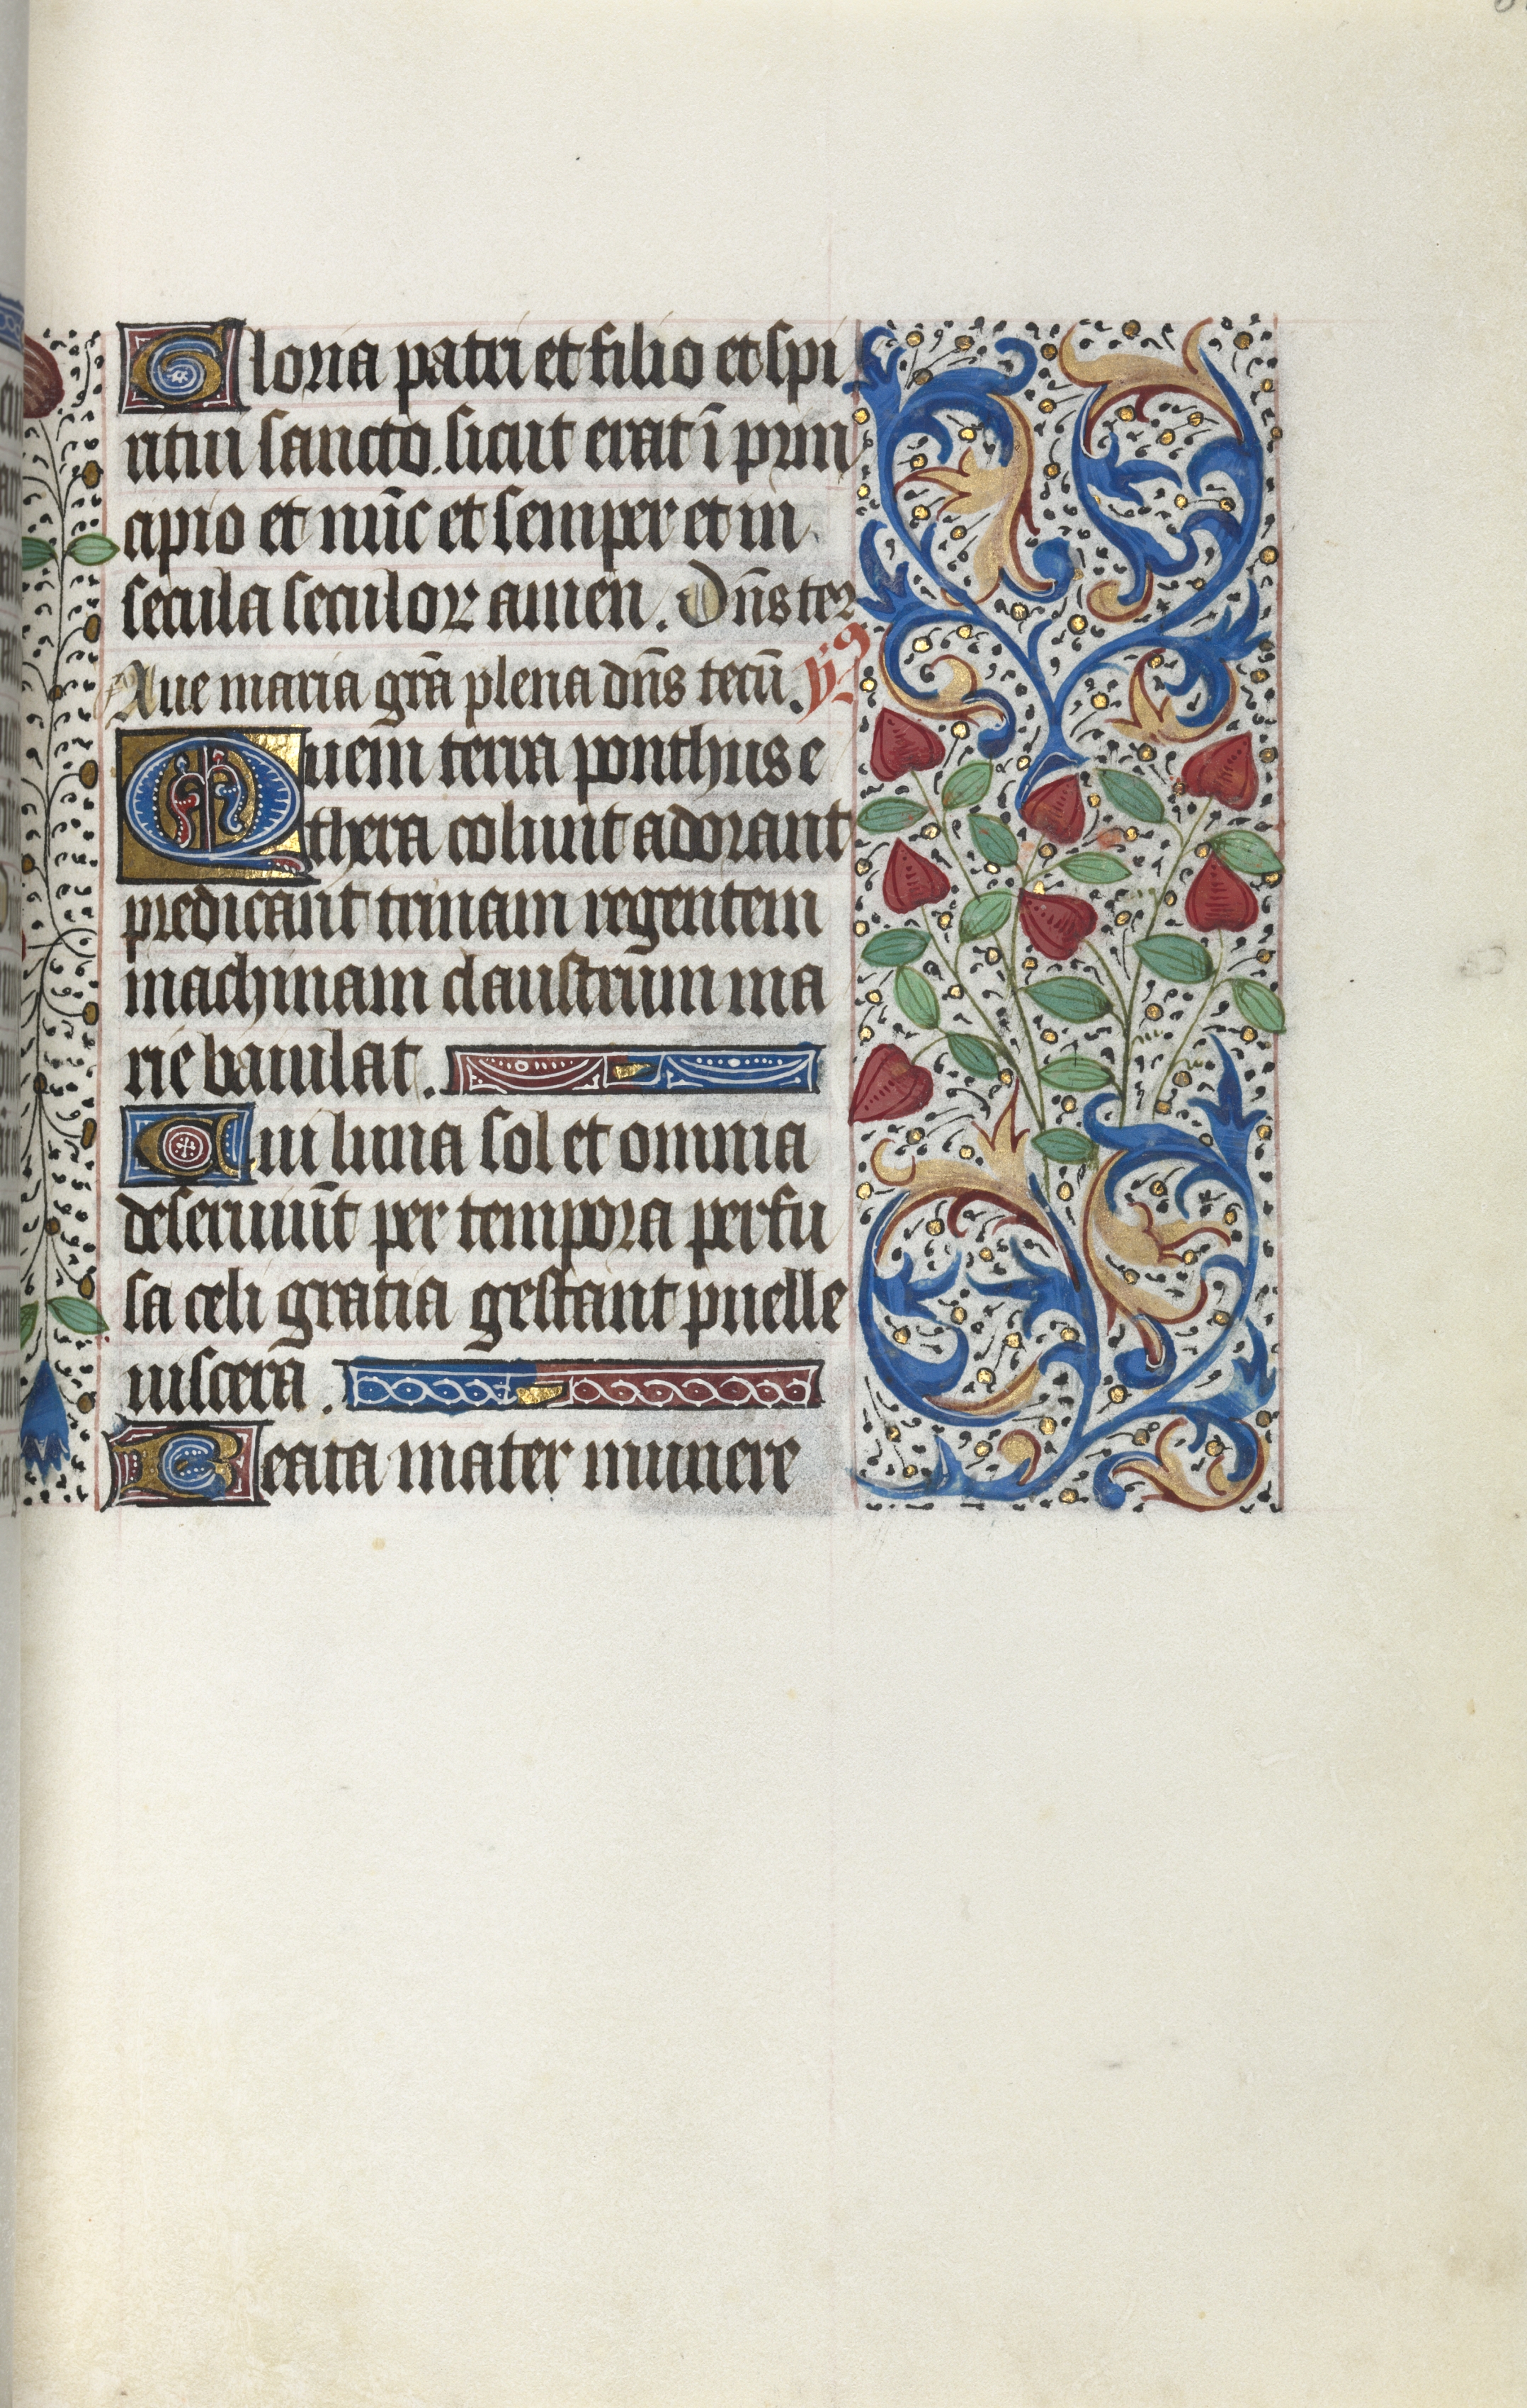 Gloria patri et filio et spi
ritui sancto. sicut erat ī prin
cipio et nūc et semper et in
secula seculoꝝ amen. Dn̄s ter
Aue maria grā plena dn̄s tecū.
Quem terra ponthus e
thera colunt adorant
predicant trinam regentem
machinam claustrum ma
rie baiulat.
Cui luna sol et omnia
deseruiūt per tempora perfu
sa celi gratia gestant puelle
uiscera.
Beata mater munere